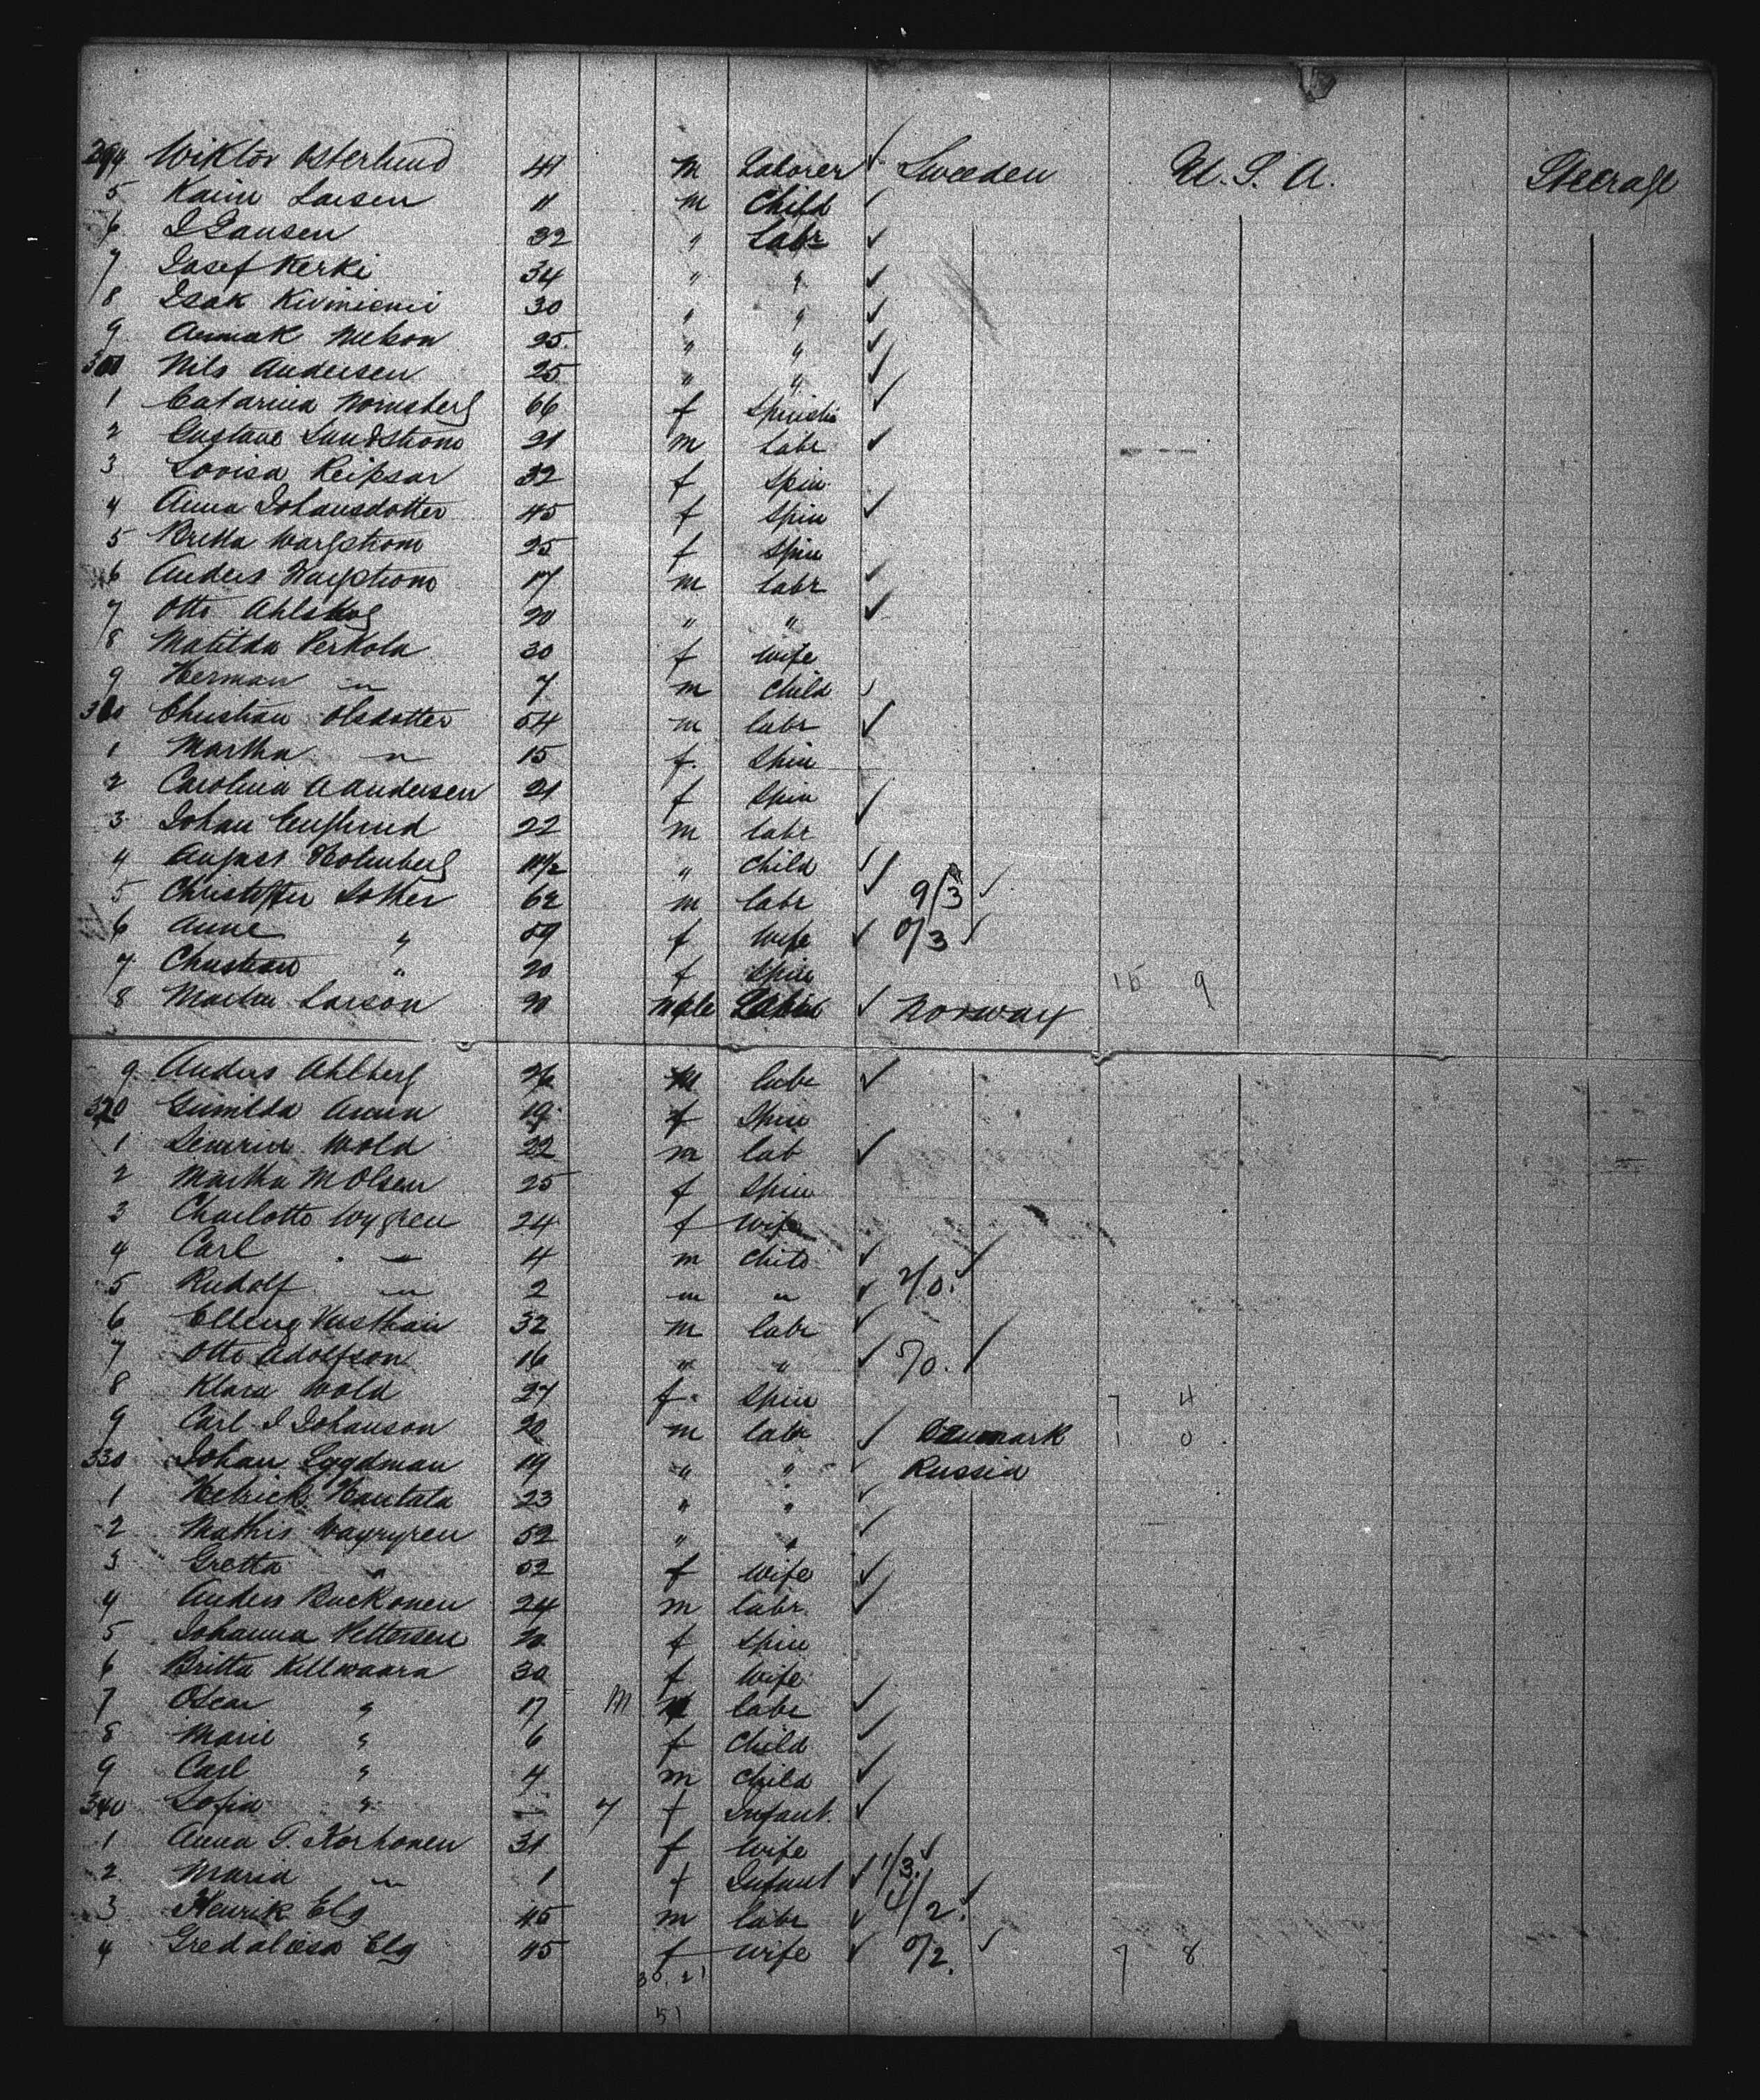 294 Wiktor Osterlund 41 m Laborer ✓ Sweeden U.S.A. Steerage
5 Larsen 11 m Child ✓
6 I Jansen 32 " Labr ✓
7 Josef Kerki 34 " " ✓
8 Isak Kiviniemi 30 " " ✓
9 Nielson 25 " " ✓
300 Nils Andersen 25 " " ✓
1 Catarina 66 f ✓
2 Gustave Sundstrom 21 m Labr ✓
3 Lovisa Reipsar 32 f Spin
4 Anna Johansdotter 45 f Spin ✓
5 Britta Wargstrom 25 f Spin
6 Anders Wargstrom 17 m labr ✓
7 Otto Ahlskog 20 " " ✓
8 Matilda Perkola 30 f wife
9 Herman " 7 m Child ✓
310 Christian Olsdotter 54 m labr ✓
1 Martha " 15 f. Spin
2 Carolina A Andersen 21 f Spin ✓
3 Johan Englund 22 m labr
4 August Holmberg 11 1/2 " Child ✓
5 Lother 62 m labr ✓ 9/3 ✓
6 Anne " 59 f Wife ✓ 0/3 ✓
7 Christian " 20 f Spin 15 9
8 Larson male ✓ Norway
9 Anders Ahlberg 26 m labr ✓
320 19 f Spin
1 Wold 22 m lab ✓
2 Martha M Olsen 25 f Spin
3 Charlotte Wygren 24 f Wife
4 Carl " 4 m Child ✓
5 Rudolf " 2 " " ✓ 2/0. ✓
6 32 m labr ✓
7 Otto Adolfson 16 " " ✓ 5/0. ✓
8 Klara Wold 27 f. Spin 7 4
9 Carl J Johanson 20 m labr ✓ Denmark 1 0
330 Johan Lygdman 19 " " ✓ Russia
1 Hautala 23 " " ✓
2 Mathis Wayrynen 52 " " ✓
3 Gretta " 52 f Wife ✓
4 Anders Buckonen 24 m labr ✓
5 Johanna Pettersen f Spin
6 Britta Killwaara 30 f Wife
7 Oscar " 17 M labr ✓
8 Marie " 6 f Child ✓
9 Carl " 4 m Child ✓
340 Sofia " 7 f Infant. ✓
1 Anna Korhonen 31 f Wife ✓
2 Maria " 1 f Infant ✓ 1/3.
3 Henrik Elg 45 m labr ✓ 4/2. ✓
4 Elg 45 f wife ✓ 0/2. ✓ 7 8
30. 21
51